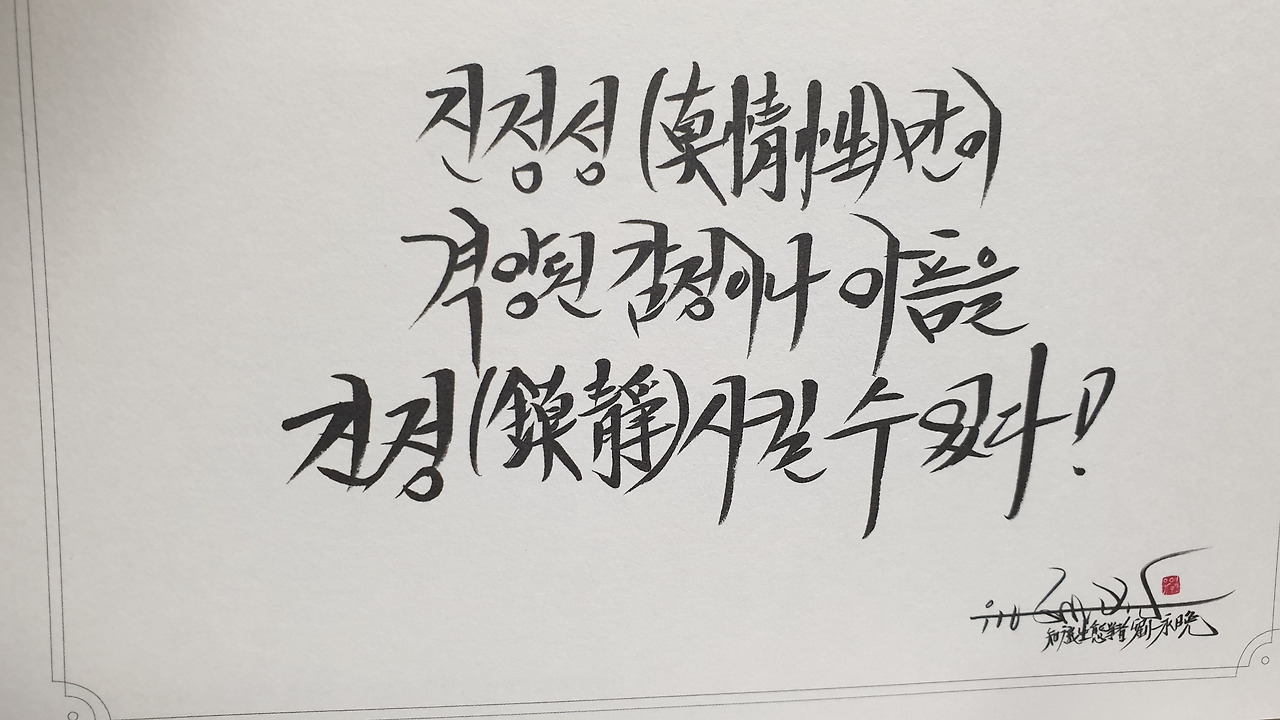 진정성(眞情性)만이
격앙된 감정이나 아픔을
진정(鎭靜)시킬 수 있다!
知識生態學者 劉永晩